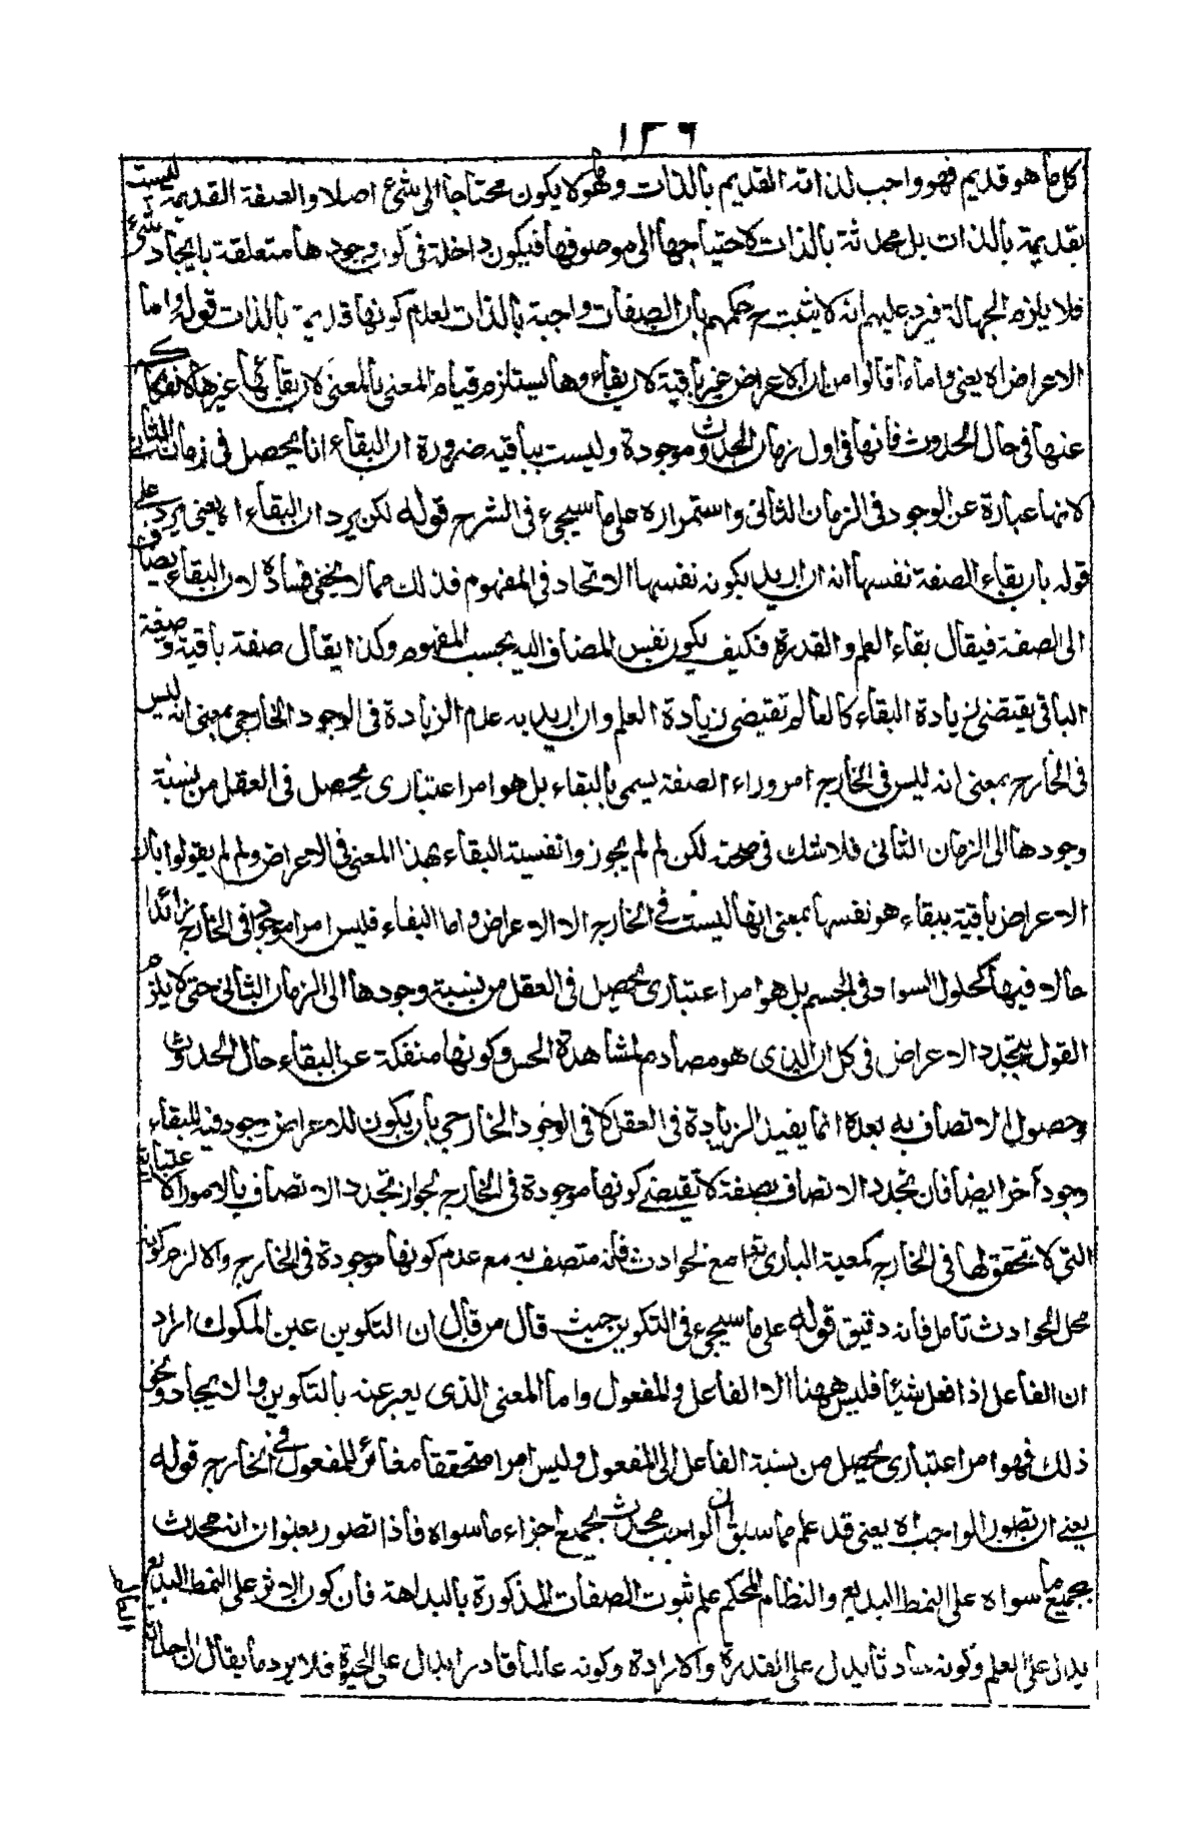 ١٣٦
كل ما هو قديم فهو واجب لذاته القديم بالذات وهو لا يكون محتاجا الى شئ اصلا والصفة القديمة ليست
بقديمة بالذات بل محدثة بالذات لاحتياجها الى موصوفها فيكون داخلة في كون وجودها متعلقة بايجاد شئ
فلا يلزم الجهالة فيرد عليهم انه لا يثبت ح حكمهم بان الصفات واجبة بالذات لعدم كونها قديمة بالذات قوله واما
الاعراض اه يعنى واما ما قالوا من ان الاعراض غير باقية لا ببقاء وها يستلزم قيام المعنى بالمعنى لان بقائها غيرها لانفكاكه
عنها في حال الحدوث فانها في اول زمان الحدوث موجودة وليست بباقيه ضرورة ان البقاء انما يحصل في زمان الثانى
لانها عبارة عن الوجود في الزمان الثانى واستمراره على ما سيجىء في الشرح قوله لكن يرد ان البقاء اه يعنى يرد على
قوله بان بقاء الصفة نفسها انه ان اريد بكونه نفسها الاتحاد في المفهوم فذلك مما لا يخفى فساده لان البقاء يضاف
الى الصفة فيقال بقاء العلم والقدرة فكيف يكون نفس المضاف اليه بحسب المفهوم وكذا يقال صفة باقية وصفة
الباقى يقتضى زيادة البقاء كالعالم تقتضى زيادة العلم وان اريد به عدم الزيادة في الوجود الخارجى بمعنى انه ليس
في الخارج بمعنى انه ليس في الخارج امر وراء الصفة يسمى بالبقاء بل هو امر اعتبارى يحصل في العقل من نسبة
وجودها الى الزمان الثانى فلا شك في صحته لكن لم لم يجوزوا نفسية البقاء بهذا المعنى في الاعراض ولم لم يقولوا بان
الاعراض باقية ببقاء هو نفسها بمعنى انها ليست في الخارج الا الاعراض واما البقاء فليس امرا موجودا في الخارج زائدا
حالا فيها كحلول السواد في الجسم بل هو امر اعتبارى يحصل في العقل من نسبة وجودها الى الزمان الثانى حتى لا يلزم
القول بتجدد الاعراض في كل ان الذى هو مصادم لمشاهدة الحس وكونها منفكة عن البقاء حال الحدوث
وحصول الاتصاف به بعده انما يفيد الزيادة في العقل لا في الوجود الخارجى بان يكون للاعراض وجود فيه للبقاء
وجود آخر ايضا فان تجدد الاتصاف بصفة لا تقتضى كونها موجودة في الخارج لجواز تجدد الاتصاف بالامور الاعتبارية
التى لا تحقق لها في الخارج كمعية البارى تعا مع الحوادث فانه متصف به مع عدم كونها موجودة في الخارج والا لزم كونه
محل الحوادث تامل فانه دقيق قوله على ما سيجىء في التكوين حيث قال من قال ان التكوين عين المكون اراد
ان الفاعل اذا فعل شيئا فليس ههنا الا الفاعل والمفعول واما المعنى الذى يعبر عنه بالتكوين والايجاد ونحو
ذلك فهو امر اعتبارى يحصل من نسبة الفاعل الى المفعول وليس امرا متحققا مغائر للمفعول في الخارج قوله
يعنى ان تصور الواجب اه يعنى قد علم مما سبق ان الواجب محدث لجميع اجزاء ما سواه فاذا تصور بعنوان انه محدث
بجميع ما سواه على النمط البديع والنظام المحكم علم ثبوت الصفات المذكورة بالبداهة فان كون الاثر على النمط البديع
يدل على العلم وكونه حادثا يدل على القدرة والارادة وكونه عالما قادرا يدل على الحيوة فلا يرد ما يقال ان احداث
العالم